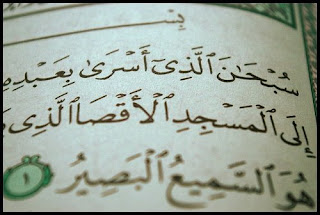 بِسْــ
سُبْحَٰنَ ٱلَّذِىٓ أَسْرَىٰ بِعَبْدِهِ
إِلَى ٱلْمَسْجِدِ ٱلْأَقْصَا ٱلَّذِى
هُوَ ٱلسَّمِيعُ ٱلْبَصِيرُ ١